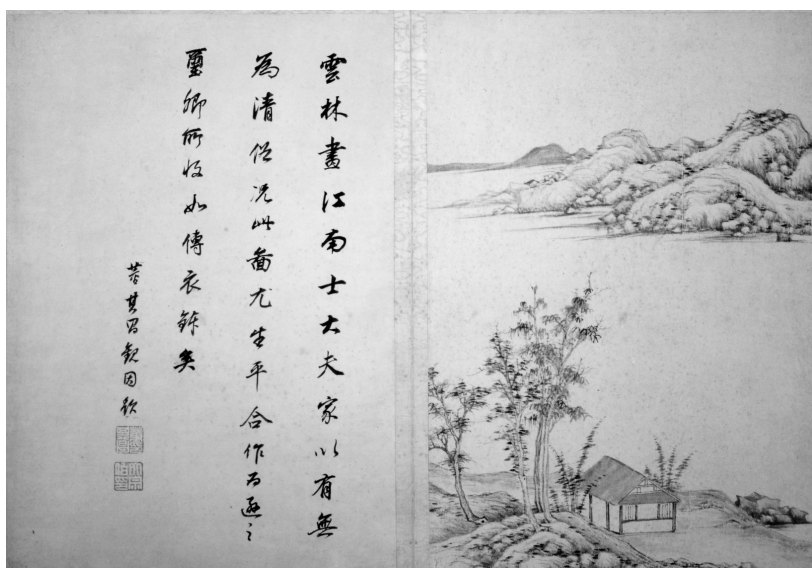 雲林畫江南士大夫家以有無
為清俗況此圖尤生平合作為遜之
璽卿所收如傳衣鉢矣
董其昌觀因題